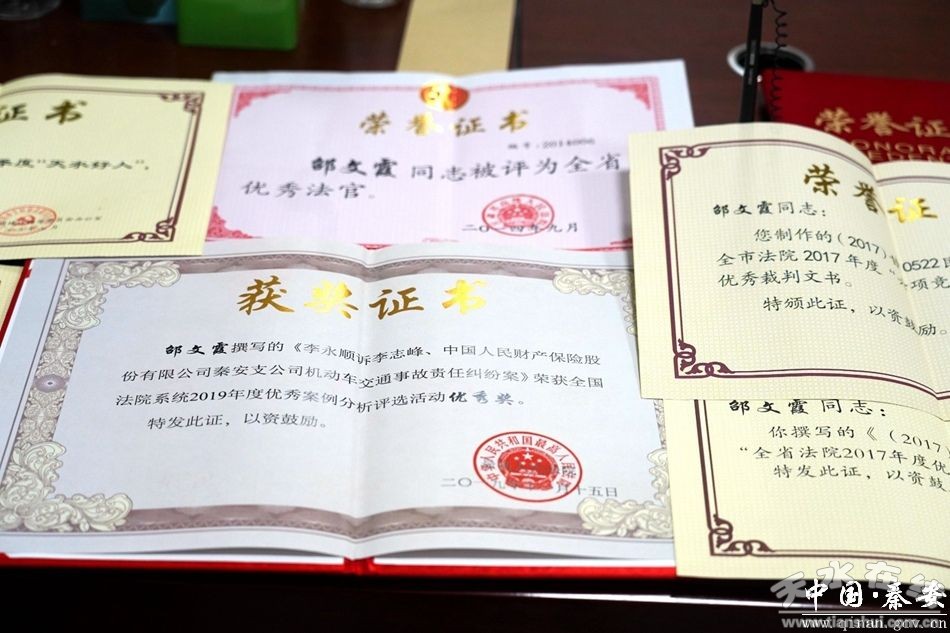 证书
季度“天水好人”，
荣誉证书
编号：2014006
邹文霞 同志被评为全省
优秀法官。
二〇一四年九月
荣誉证
荣誉证
邹文霞同志：
您制作的（2017）
0522民
全市法院 2017 年度“
项竞
优秀裁判文书。
特颁此证，以资鼓励。
获奖证书
邹文霞撰写的《李永顺诉李志峰、中国人民财产保险股
份有限公司秦安支公司机动车交通事故责任纠纷案》荣获全国
法院系统2019年度优秀案例分析评选活动优秀奖。
特发此证，以资鼓励。
中华人民共和国最高人民法院
二〇一九年
月十五日
邹文霞同志：
你撰写的《（2017）
“全省法院2017年度优
特发此证，以资鼓
天水在线
www.tianshui.com.cn
中国·秦安
www.qinan.gov.cn